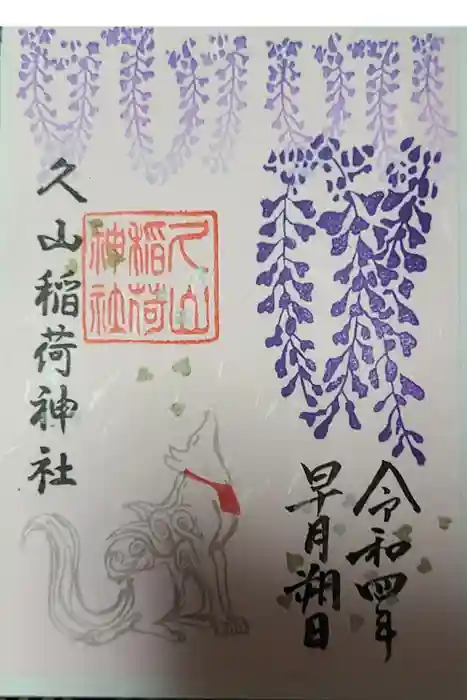 令和四年
早月朔日
久山稲荷神社
久山稲荷神社